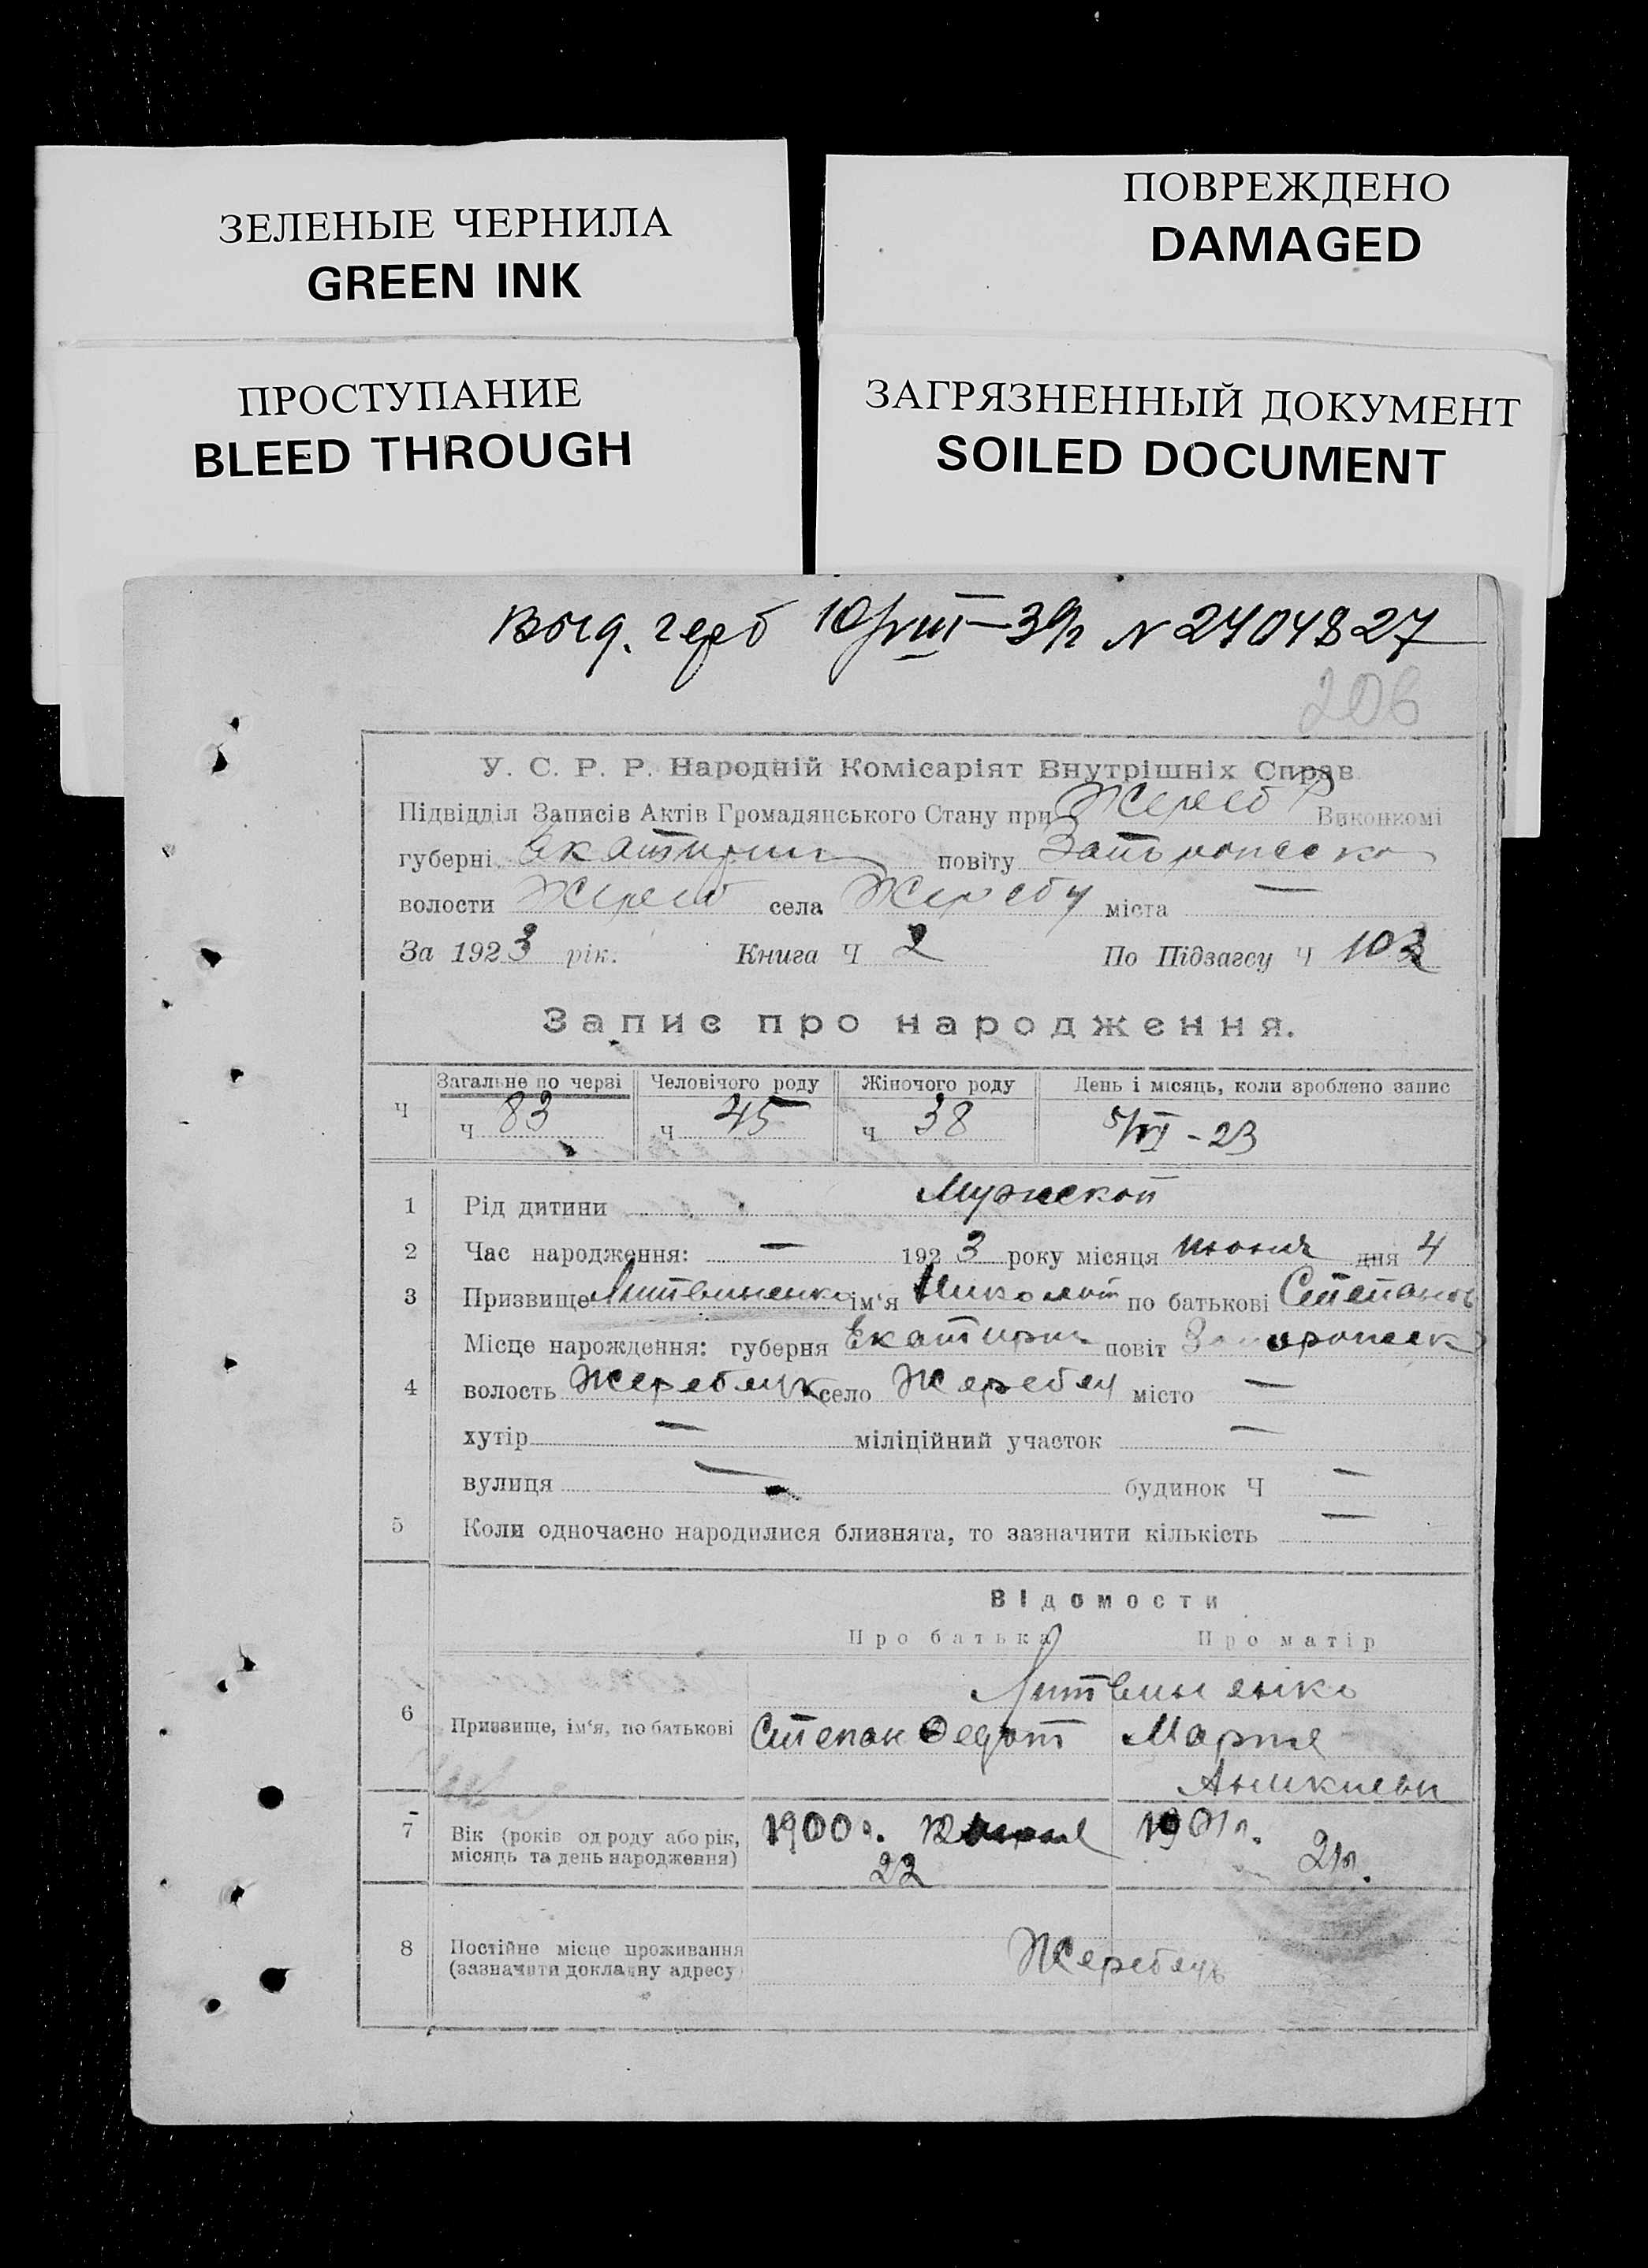 ЗЕЛЕНЫЕ ЧЕРНИЛА
GREEN INK
ПОВРЕЖДЕНО
DAMAGED
ПРОСТУПАНИЕ
BLEED THROUGH
ЗАГРЯЗНЕННЫЙ ДОКУМЕНТ
SOILED DOCUMENT
Выд. герб 10/VIII-39г N 2404827
206
У. С. Р. Р. Народній Комісаріят Внутрішніх Справ
Підвідділ Записів Актів Громадянського Стану при Жереб Р Виконкомі
губерні Екатирин повіту
волости Жереб села Жеребц міста —
За 1923 рік. Книга Ч 2 По Підзагсу Ч 103
Запис про народження.
Загальне по черві Человічого роду Жіночого роду День і місяць, коли зроблено запис
Ч Ч 83 Ч 45 Ч 38 5/VI - 23
1 Рід дитини Мужской
2 Час народження: — 1923 року місяця июня дня 4
3 Призвище Литвиненко ім'я Николай по батькові Степанов
Місце нарождення: губерня Екатирин повіт
4 волость село Жеребец місто —
хутір — міліційний участок —
вулиця — будинок Ч —
5 Коли одночасно народилися близнята, то зазначити кількість —
Відомости
Про батька Про матір
Литвиненко
6 Призвище, ім'я, по батькові Степан Федот Мария
7 Вік (років од роду або рік, 1900 г. 1901 г.
місяць та день народження) 22 21 л.
8 Постійне місце проживання Жеребец
(зазначити докладну адресу)